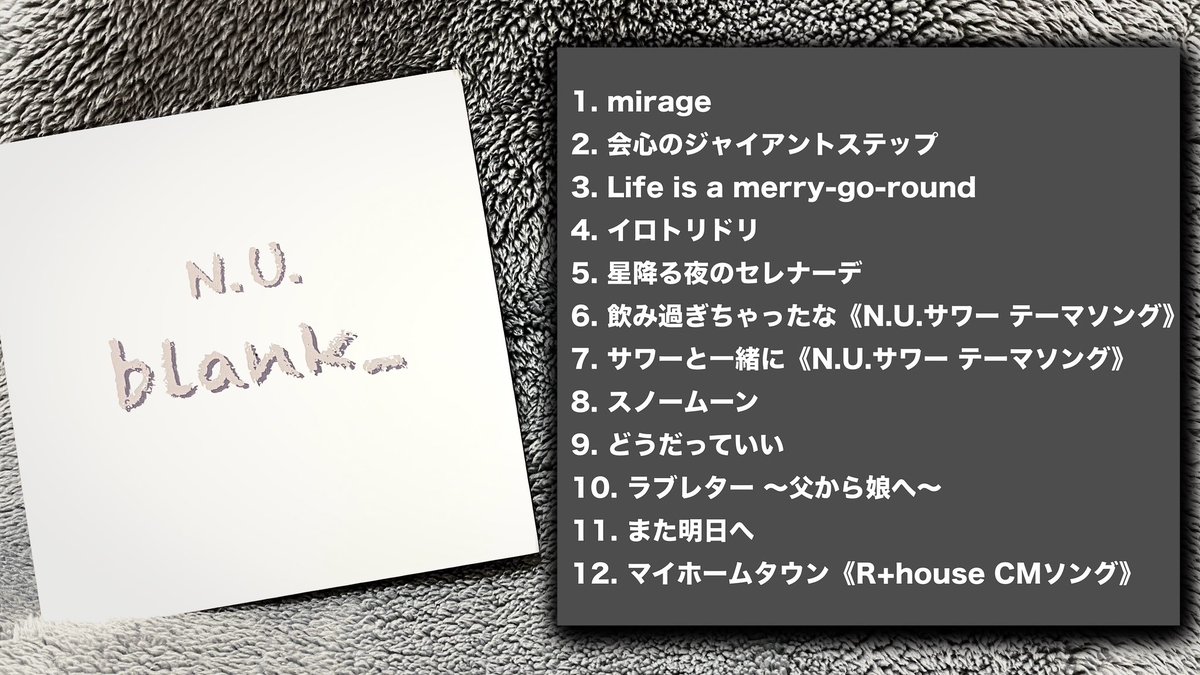 N.U.
blank_
1. mirage
2. 会心のジャイアントステップ
3. Life is a merry-go-round
4. イロトリドリ
5. 星降る夜のセレナーデ
6. 飲み過ぎちゃったな《N.U.サワー テーマソング》
7. サワーと一緒に《N.U.サワー テーマソング》
8. スノームーン
9. どうだっていい
10. ラブレター 〜父から娘へ〜
11. また明日へ
12. マイホームタウン《R+house CMソング》